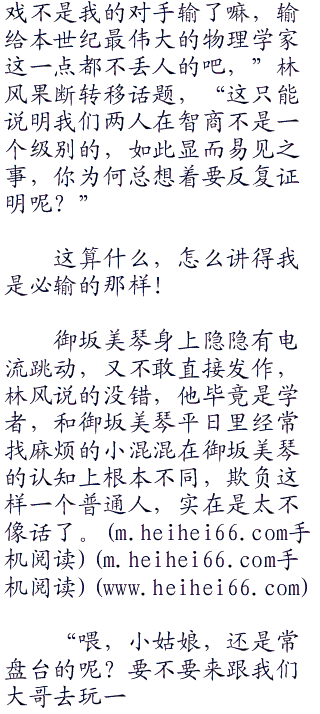 戏不是我的对手输了嘛，输
给本世纪最伟大的物理学家
这一点都不丢人的吧，”林
风果断转移话题，“这只能
说明我们两人在智商不是一
个级别的，如此显而易见之
事，你为何总想着要反复证
明呢？”
这算什么，怎么讲得我
是必输的那样！
御坂美琴身上隐隐有电
流跳动，又不敢直接发作，
林风说的没错，他毕竟是学
者，和御坂美琴平日里经常
找麻烦的小混混在御坂美琴
的认知上根本不同，欺负这
样一个普通人，实在是太不
像话了。(m.heihei66.com手
机阅读)(m.heihei66.com手
机阅读)(www.heihei66.com)
“喂，小姑娘，还是常
盘台的呢？要不要来跟我们
大哥去玩一